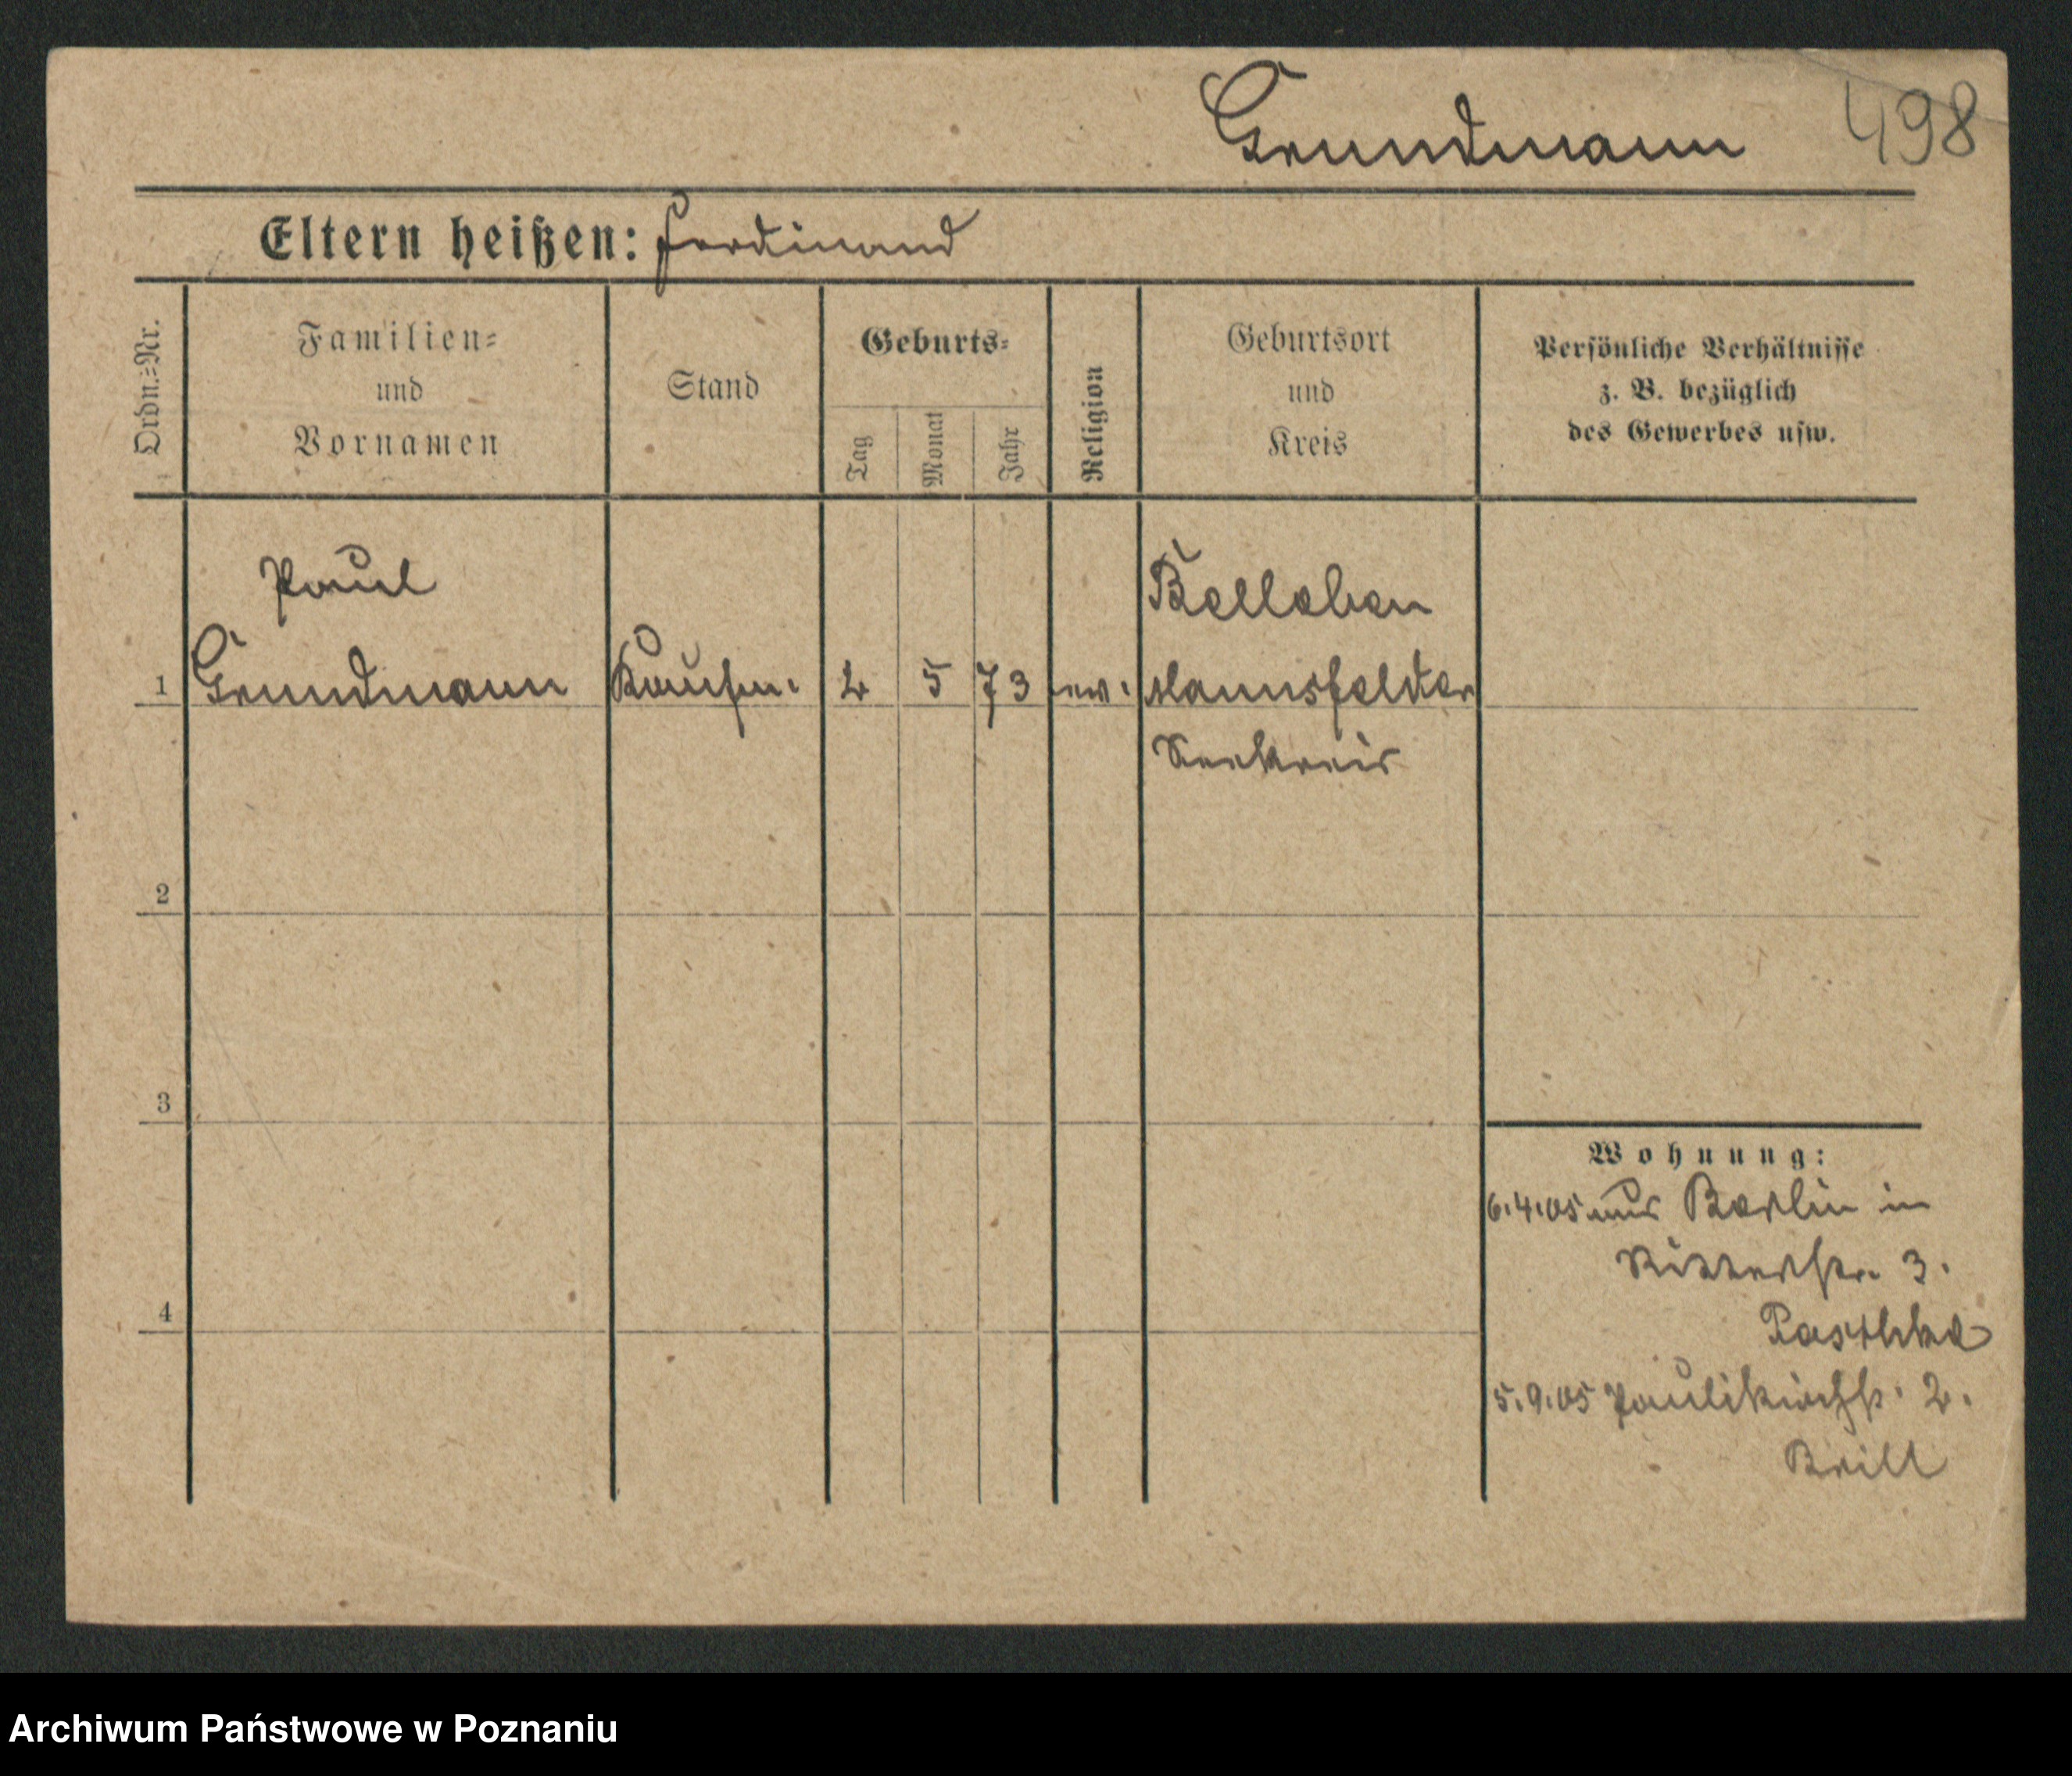 Grundmann 498
Eltern heißen: Ferdinand
Ordn.-Nr.
Familien-
und
Vornamen
Stand
Geburts-
Tag
Monat
Jahr
Religion
Geburtsort
und
Kreis
Persönliche Verhältnisse
z. B. bezüglich
des Gewerbes usw.
Paul
Belleben
1 Grundmann Kaufm. 2 5 73 ev. Mannsfelder
Seekreis
2
3
4
Wohnung:
6.4.05 aus Berlin in
Ritterstr. 3.
Paschke
5.9.05 Paulikirchstr. 2.
Brill
Archiwum Państwowe w Poznaniu